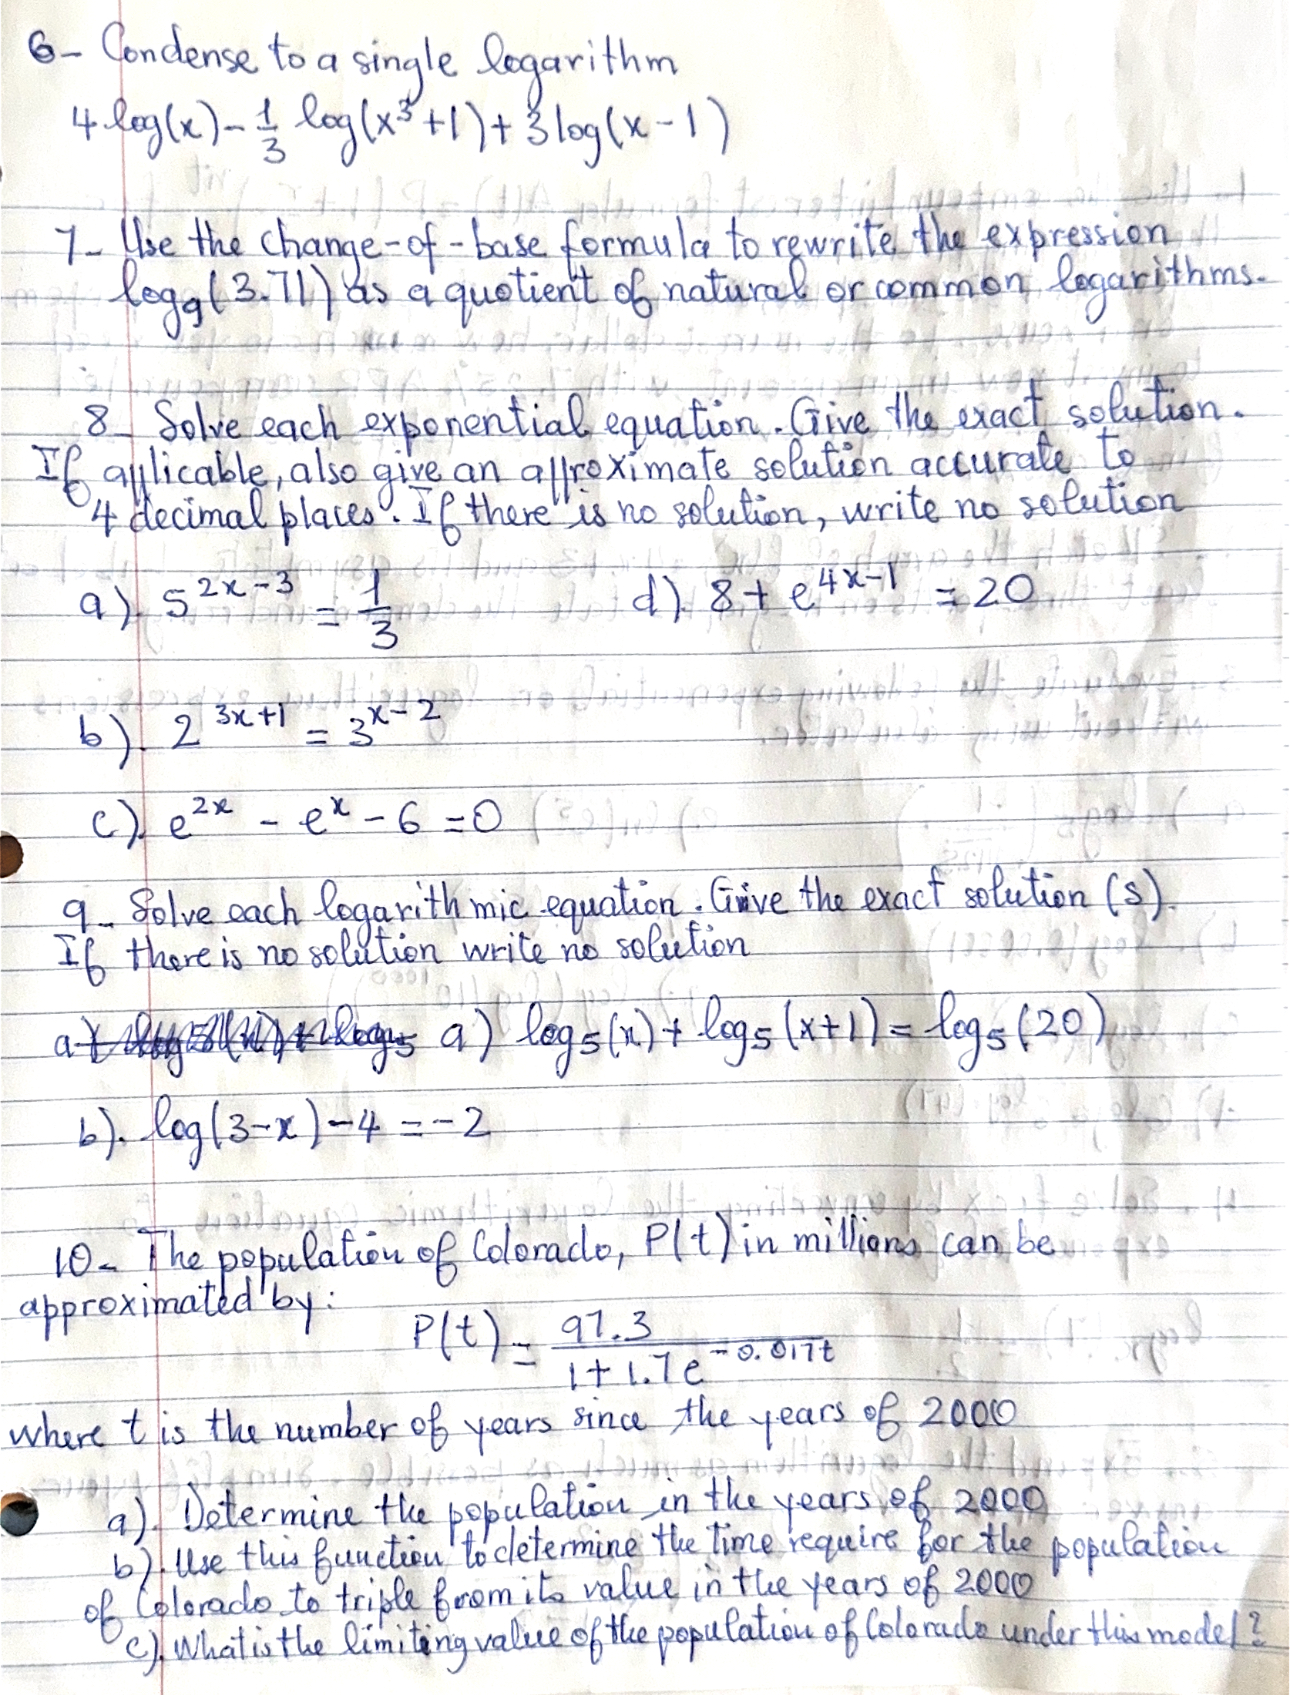 6- Condense to a single logarithm
4 log(x) - 1/3 log(x³+1) + 3 log(x-1)
7- Use the change-of-base formula to rewrite the expression
log₉(3.71) as a quotient of natural or common logarithms.
8- Solve each exponential equation. Give the exact solution.
If applicable, also give an approximate solution accurate to
4 decimal places. If there is no solution, write no solution
a). 5^(2x-3) = 1/3 d). 8 + e^(4x-1) = 20
b). 2^(3x+1) = 3^(x-2)
c). e^(2x) - e^x - 6 = 0
9- Solve each logarithmic equation. Give the exact solution (s).
If there is no solution write no solution
a) log₅(x) + log₅(x+1) = log₅(20)
b). log(3-x) - 4 = -2
10- The population of Colorado, P(t) in millions can be
approximated by:
P(t) = 97.3 / (1 + 1.7e^(-0.017t))
where t is the number of years since the years of 2000
a). Determine the population in the years of 2000
b). Use this function to determine the time require for the population
of Colorado to triple from its value in the years of 2000
c). What is the limiting value of the population of Colorado under this model?